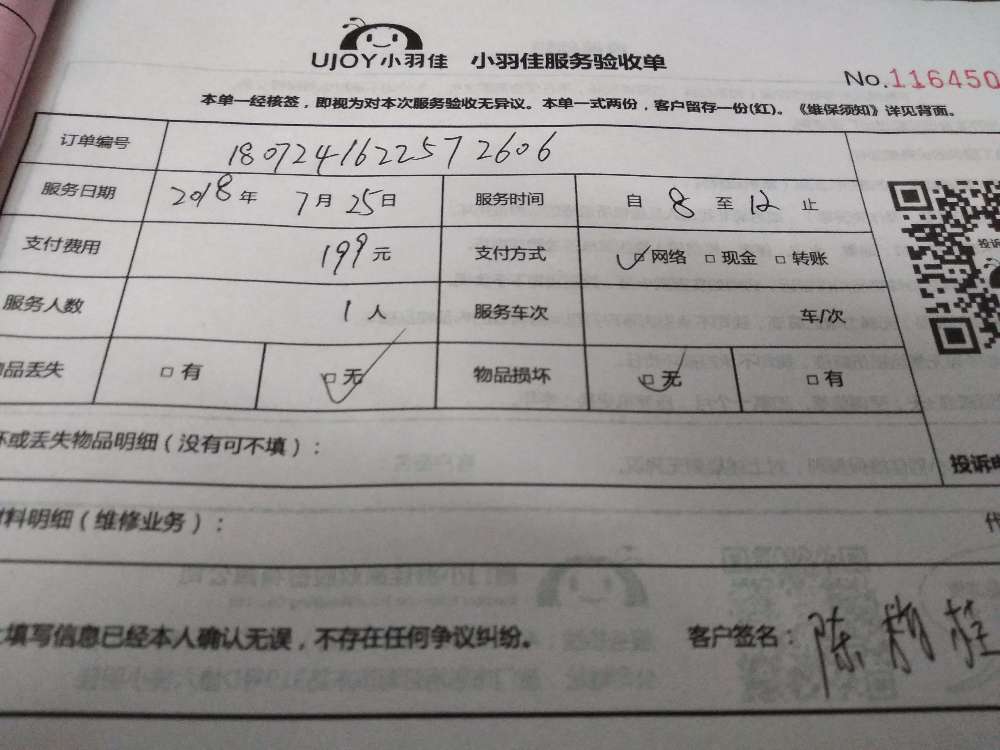 UJOY小羽佳 小羽佳服务验收单
No.116450
本单一经核签，即视为对本次服务验收无异议。本单一式两份，客户留存一份(红)。《维保须知》详见背面。
订单编号 180724162257 2606
服务日期 2018年 7月25日 服务时间 自 8 至 12 止
支付费用 199元 支付方式 □网络 □现金 □转账
服务人数 1人 服务车次 车/次
品丢失 □有 □无 物品损坏 □无 □有
或丢失物品明细（没有可不填）：
投诉
料明细（维修业务）：
填写信息已经本人确认无误，不存在任何争议纠纷。 客户签名：陈